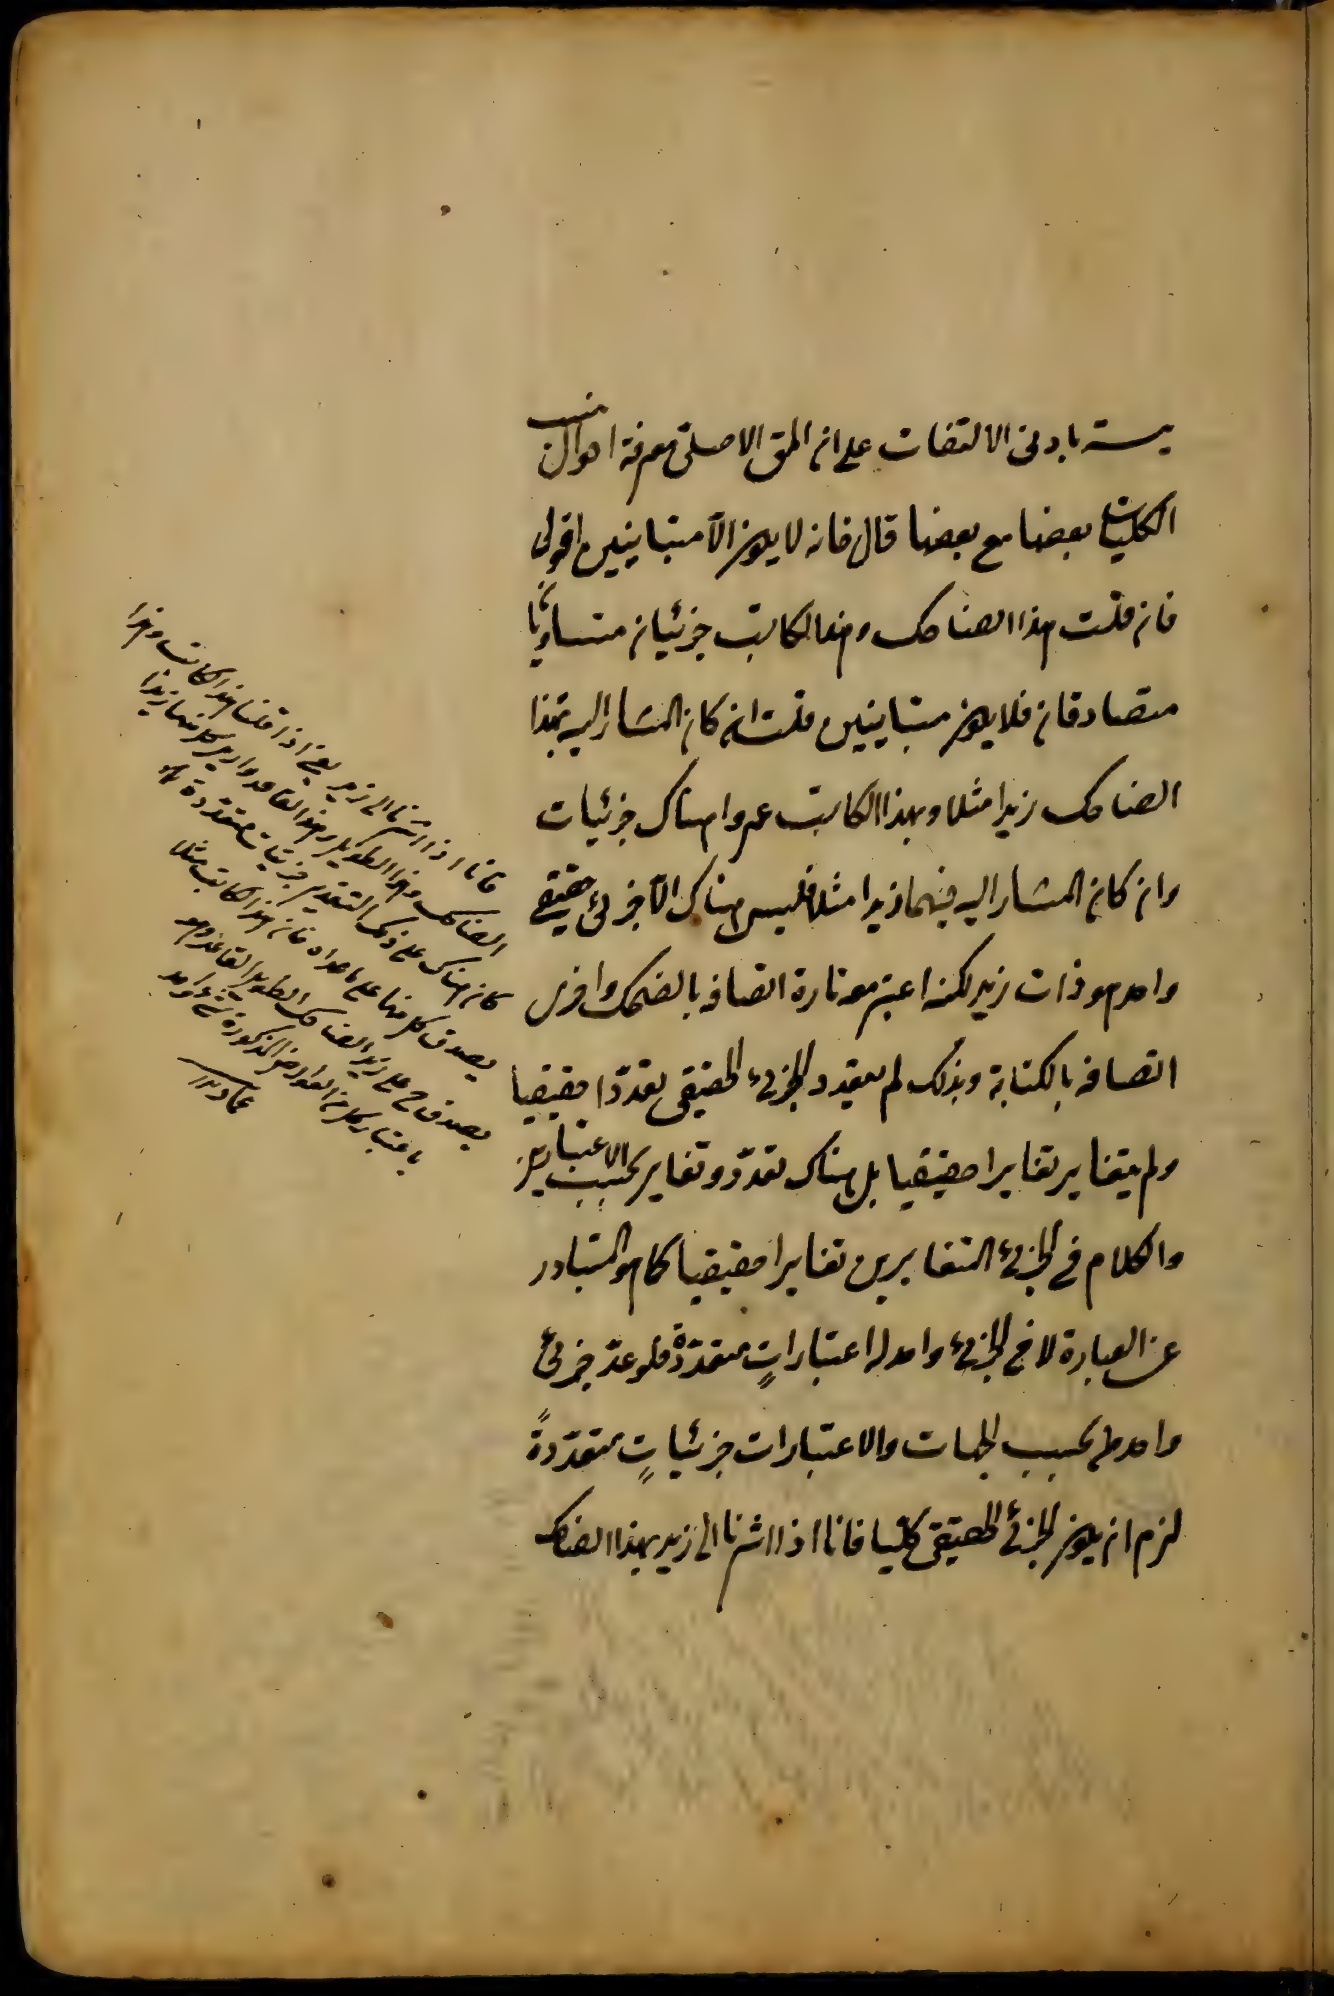 يسته بادنى الالتفات على ان المق الاصلى معرفة احوال نسب
الكليات بعضها مع بعضها قال فانه لا يكون الا متباينين اقول
فان قلت هذا الضاحك وهذا الكاتب جزئيان متساويان
متصادقان فلا يكون متباينين قلت ان كان المشار اليه بهذا
الضاحك زيدا مثلا وبهذا الكاتب عمروا هناك جزئيات
وان كان المشار اليه فيهما زيدا مثلا فليس هناك الا جزئى حقيقى
واحد هو ذات زيد لكنه اعتبر معه تارة اتصافه بالضحك واخرى
اتصافه بالكتابة وبذلك لم يتعدد الجزئى الحقيقى تعددا حقيقيا
ولم يتغاير تغايرا حقيقيا بل هناك تعدد وتغاير بحسب الاعتبار
والكلام فى الجزئى المتغايرين تغايرا حقيقيا كما هو المتبادر
عن العبارة لا فى الجزئى واحد له اعتبارات متعددة فلو عد جزئى
واحد بحسب الجهات والاعتبارات جزئيات متعددة
لزم ان يكون الجزئى الحقيقى كليا فانا اذا اشرنا الى زيد بهذا الضاحك
فانا اذا اشرنا الى زيد يعنى اذا قلنا هذا الكاتب وهذا
الضاحك وهذا الطويل وهذا القاعد واريد بكل منها زيدا
كان هناك على ذلك التقدير جزئيات متعددة
يصدق كل منها على ما عداه فان هذا الكاتب مثلا
يصدق على زيد الضاحك الطويل القاعد وهو
باعتبار كل من العوارض المذكورة شئ واحد
عماد